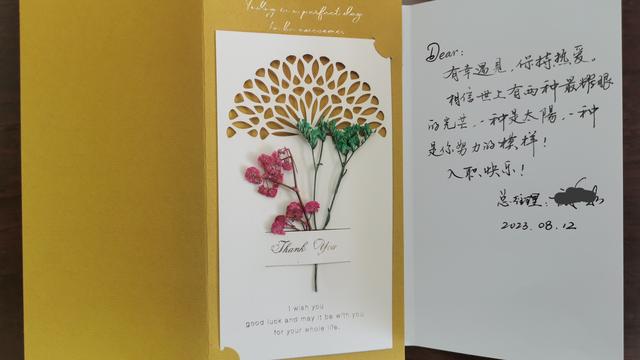 Today is a perfect day
to be awesome.
Thank You
I wish you
good luck and may it be with you
for your whole life.
Dear:
有幸遇见,保持热爱。
相信世上有两种最耀眼
的光芒,一种是太陽,一种
是你努力的模样!
入职快乐!
总经理:
2023.08.12